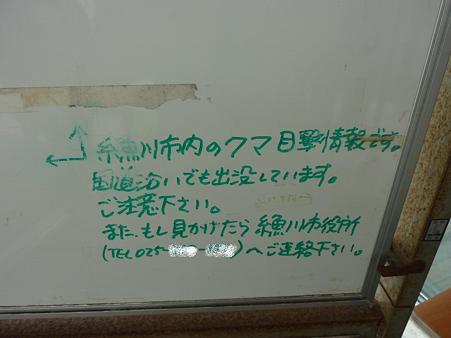 糸魚川市内のクマ目撃情報です。
国道沿いでも出没しています。
ご注意下さい。
また、もし見かけたら糸魚川市役所
(TEL 025-    -    )へご連絡下さい。